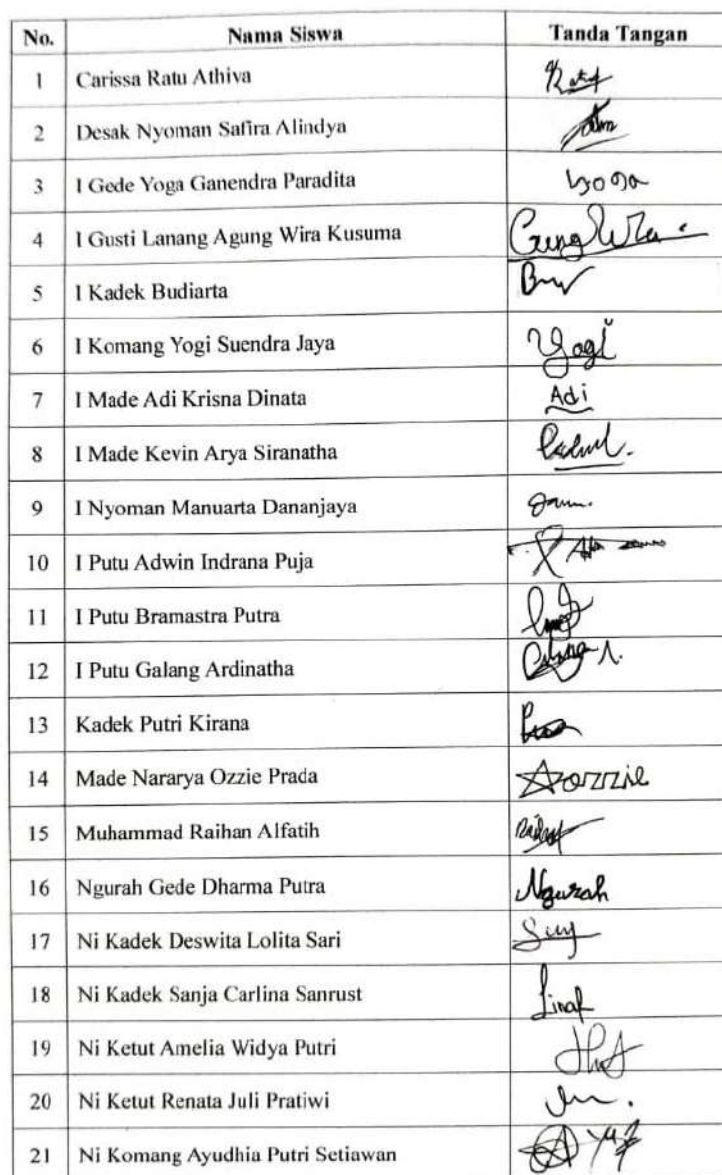 No. Nama Siswa Tanda Tangan
1 Carissa Ratu Athiva
2 Desak Nyoman Safira Alindya
3 I Gede Yoga Ganendra Paradita Yoga
4 I Gusti Lanang Agung Wira Kusuma
5 I Kadek Budiarta
6 I Komang Yogi Suendra Jaya Yogi
7 I Made Adi Krisna Dinata Adi
8 I Made Kevin Arya Siranatha
9 I Nyoman Manuarta Dananjaya
10 I Putu Adwin Indrana Puja
11 I Putu Bramastra Putra
12 I Putu Galang Ardinatha
13 Kadek Putri Kirana
14 Made Nararya Ozzie Prada ozzie
15 Muhammad Raihan Alfatih
16 Ngurah Gede Dharma Putra Ngurah
17 Ni Kadek Deswita Lolita Sari
18 Ni Kadek Sanja Carlina Sanrust
19 Ni Ketut Amelia Widya Putri
20 Ni Ketut Renata Juli Pratiwi
21 Ni Komang Ayudhia Putri Setiawan